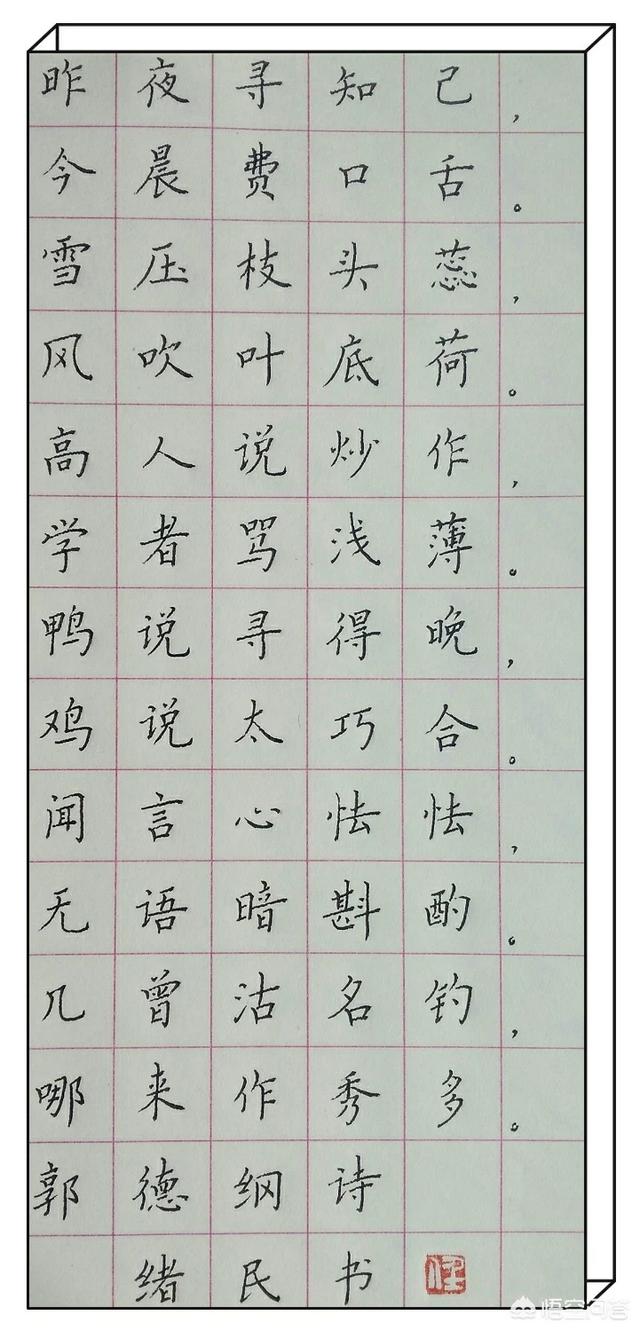 昨夜寻知己，
今晨费口舌。
雪压枝头蕊，
风吹叶底荷。
高人说炒作，
学者骂浅薄。
鸭说寻得晚，
鸡说太巧合。
闻言心怯怯，
无语暗斟酌。
几曾沽名钓，
哪来作秀多。
郭德纲诗
绪民书
悟空问答